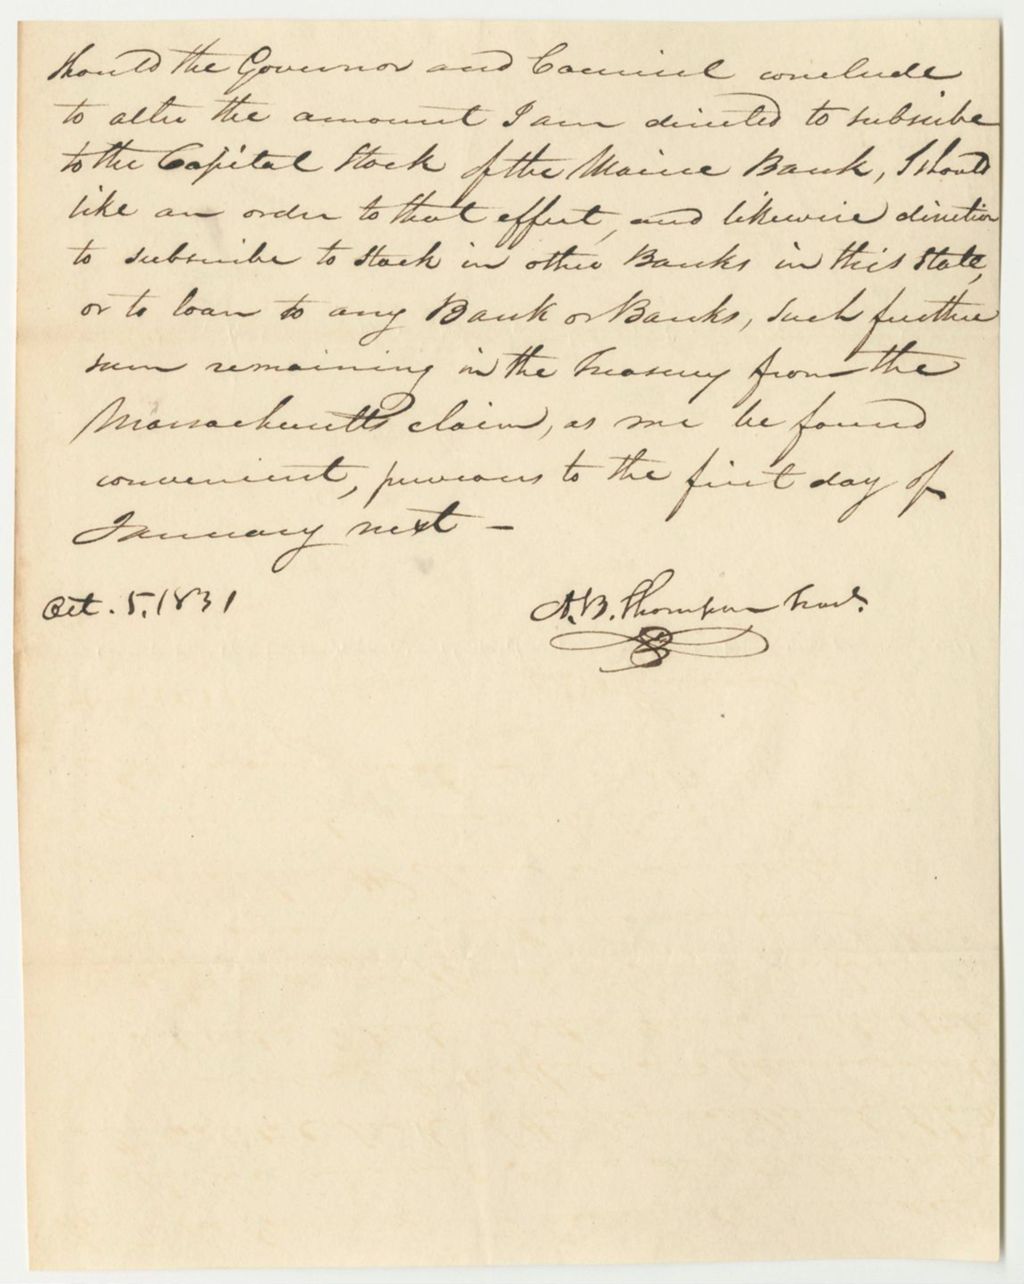 should the Governor and Council conclude
to alter the amount I am directed to subscribe
to the Capital Stock of the Maine Bank, I should
like an order to that effect, and likewise direction
to subscribe to Stock in other Banks in this State,
or to loan to any Bank or Banks, such further
sum remaining in the Treasury from the
Massachusetts claim, as me be found
convenient, previous to the first day of
January next —
Oct. 5, 1831
A.B. Thompson Treas.